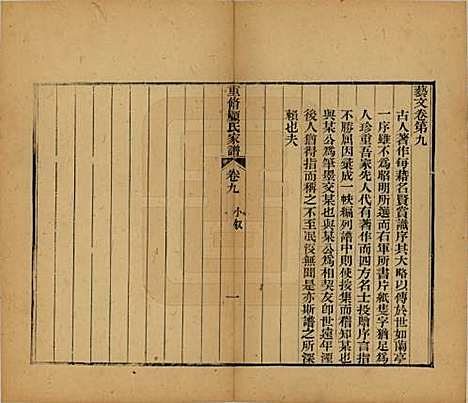 藝文卷第九
古人著作每藉名賢賞識序其大略以傳於世如蘭亭
一序雖不為昭明所選而右軍所書片紙隻字猶足為
人珍重吾家先人代有著作而四方名士投贈序言指
不勝屈因彙成一帙編列譜中則使按集而稽知某也
與某公為筆墨交某也與某公為相契友即世遠年湮
後人猶得指而稱之不至泯沒無聞是亦斯譜之所深
賴也夫
重脩顧氏家譜
卷九
小叙
一